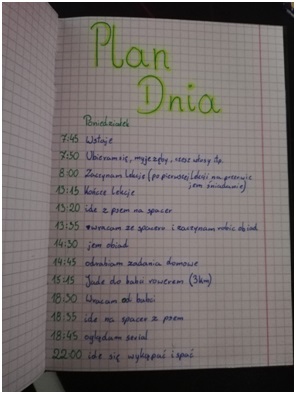 Plan
Dnia
Poniedziałek
7:45 Wstaje
7:50 Ubieram się, myje zęby, czesze włosy itp.
8:00 Zaczynam Lekcje (po pierwszej lekcji na przerwie
jem śniadanie)
13:15 Kończe lekcje
13:20 ide z psem na spacer
13:55 wracam ze spaceru i zaczynam robic obiad
14:30 jem obiad
14:45 odrabiam zadania domowe
15:15 Jade do babci rowerem (3km)
18:30 Wracam od babci
18:35 ide na spacer z psem
18:45 oglądam serial
22:00 ide się wykąpać i spać